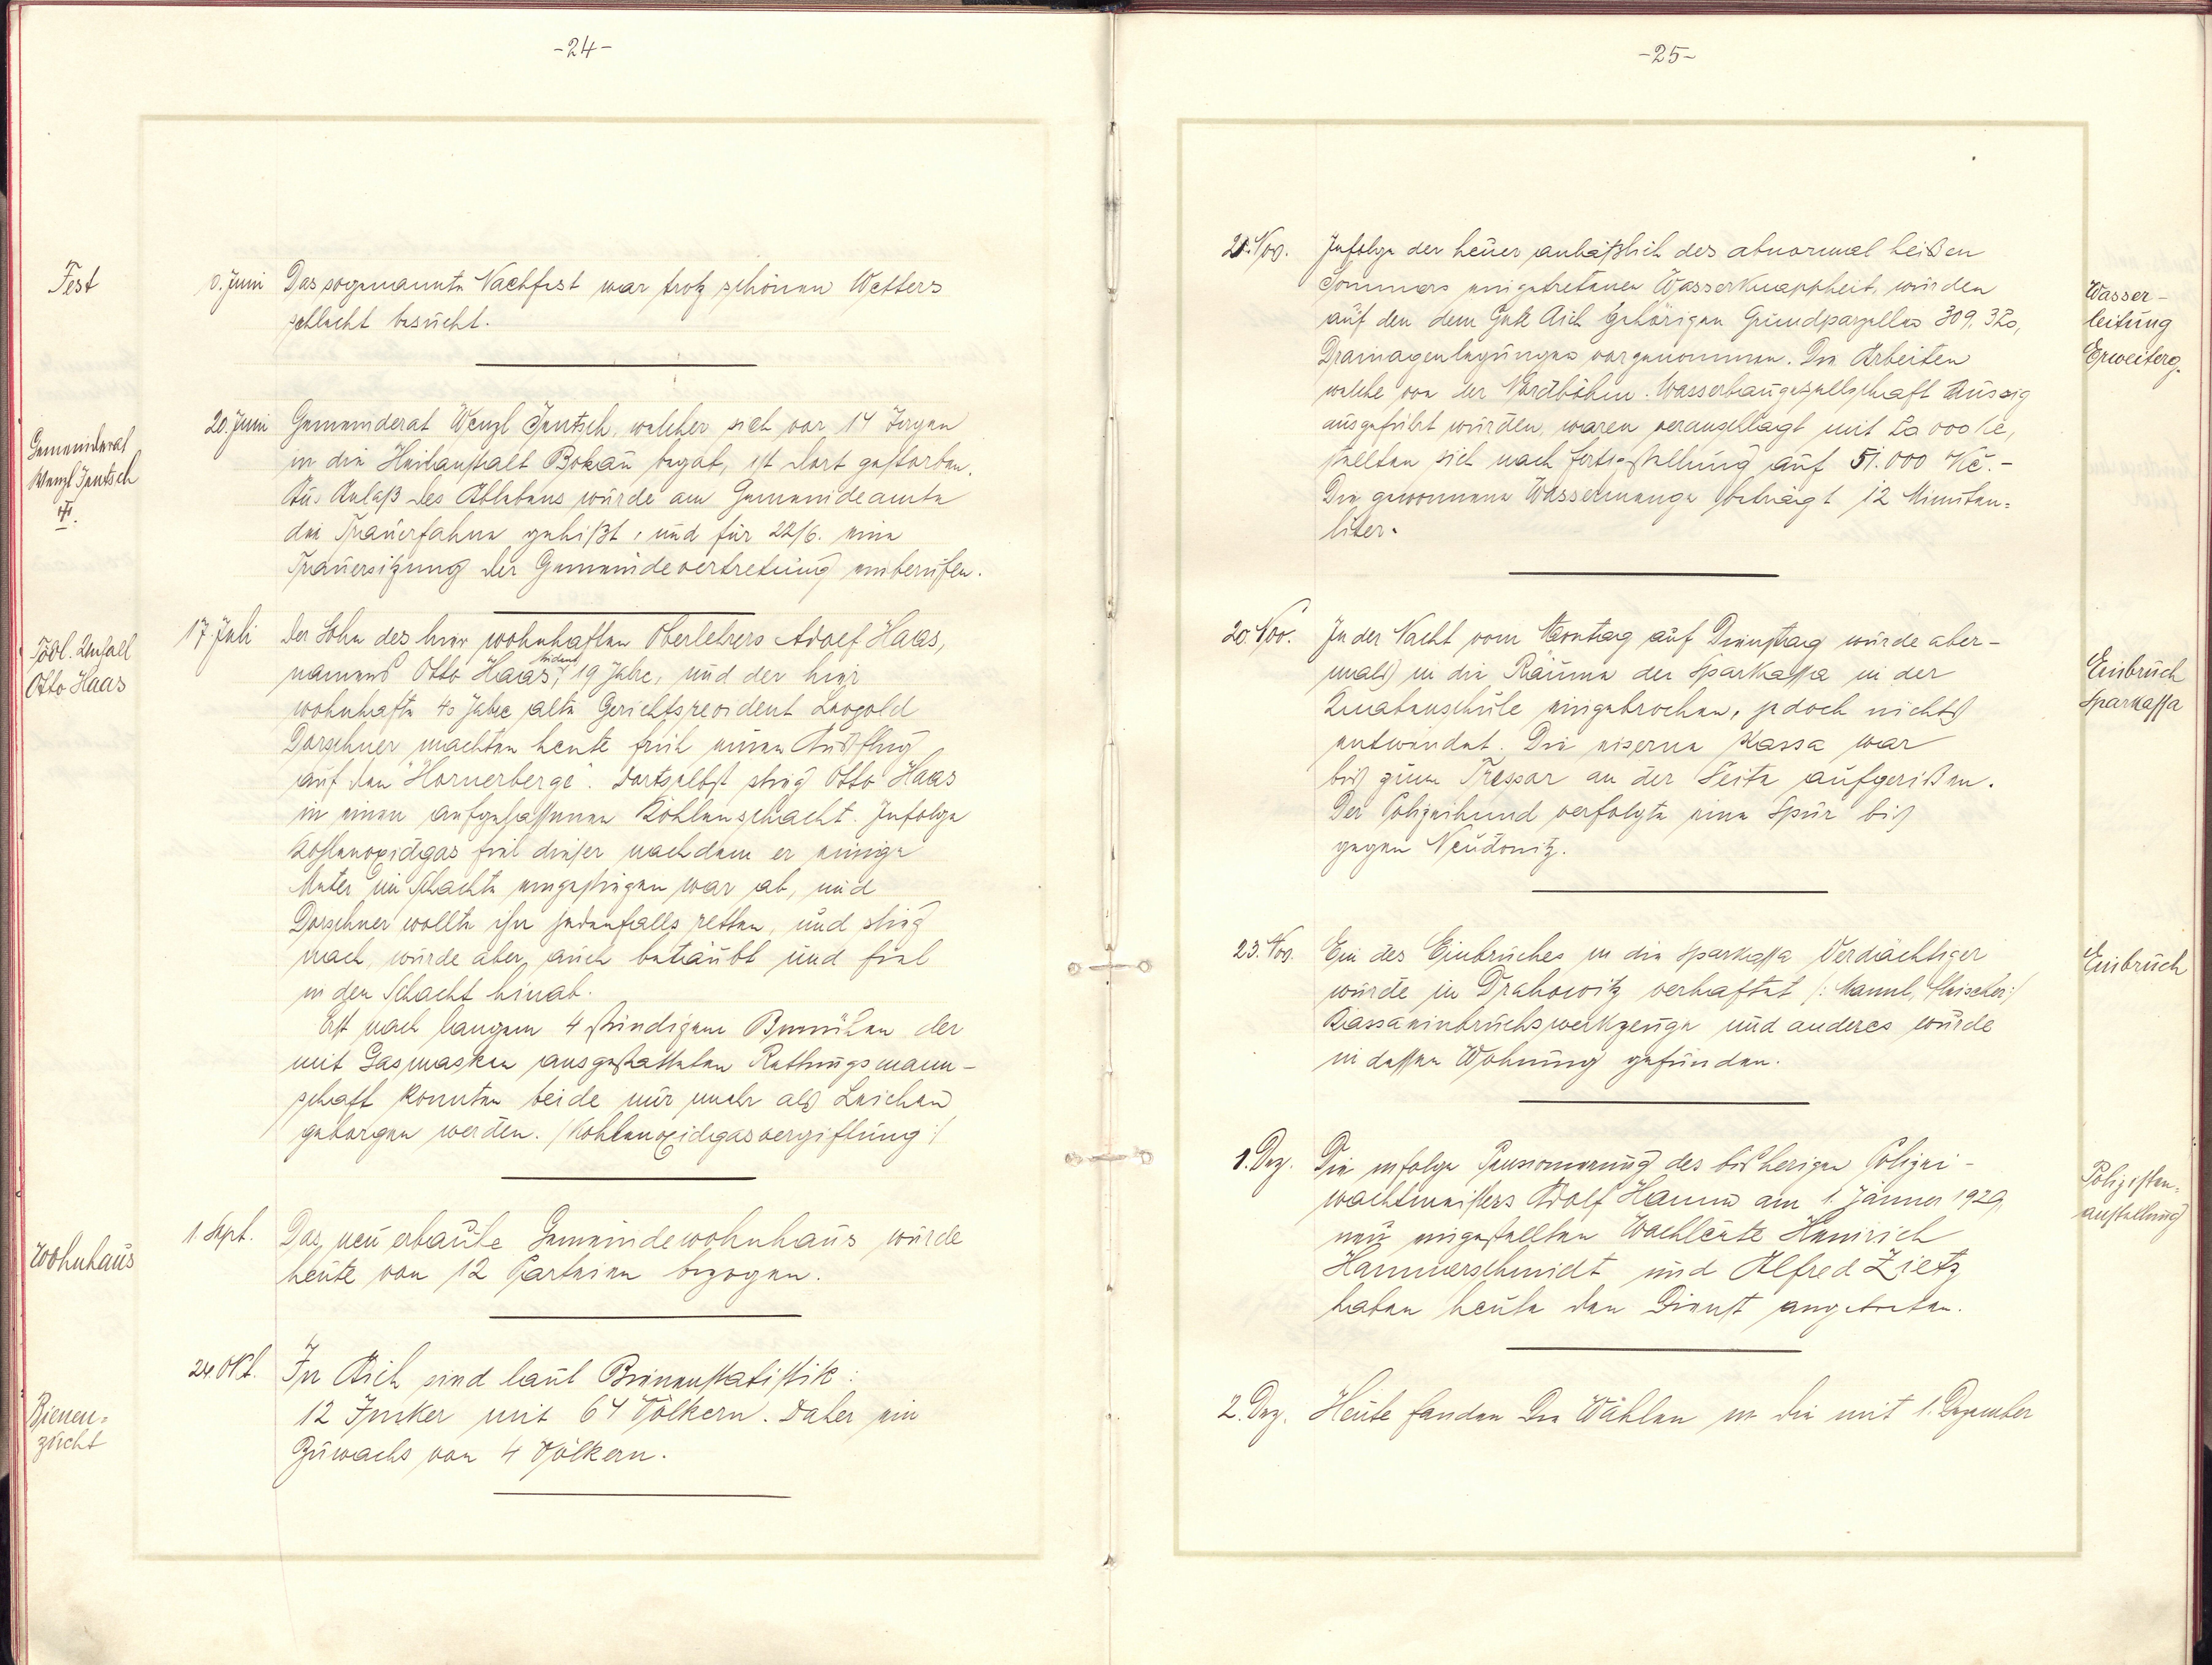 -24-
Fest
Juni Das sogenannte Nachfest war trotz schönen Wetters
schlecht besucht.
Gemeinderat
Wenzl Jentsch
20. Juni Gemeinderat Wenzl Jentsch, welcher sich vor 14 Tagen
in die Heilanstalt Bokau begab, ist dort gestorben.
Aus Anlaß des Ablebens wurde am Gemeindeamte
die Trauerfahne gehißt, und für 22/6. eine
Trauersitzung der Gemeindevertretung einberufen.
Tödl. Unfall
Otto Haas
17. Juli Der Sohn des hier wohnhaften Oberlehrers Adolf Haas,
namens Otto Haas, 19 Jahre, und der hier
wohnhafte Jahre alte Gerichtsrevident Leopold
Dorschner machten heute früh einen Ausflug
auf den "Hornerberge". Dortselbst stieg Otto Haas
in einen aufgelassenen Kohlenschacht. Infolge
Kohlenoxidgas fiel dieser nachdem er einige
Meter im Schachte eingestiegen war ab, und
Dorschner wollte ihn jedenfalls retten, und stieg
nach, wurde aber auch betäubt und fiel
in den Schacht hinab.
Erst nach langem 4 stündigem Bemühen der
mit Gasmasken ausgestatteten Rettungsmann-
schaft konnten beide nur mehr als Leichen
geborgen werden. /Kohlenoxidgasvergiftung:/
Wohnhaus
1. Sept. Das neu erbaute Gemeindewohnhaus wurde
heute von 12 Parteien bezogen.
Bienen=
zucht
24. Okt. In Aich sind laut Bienenstatistik:
12 Imker mit 64 Völkern. Daher ein
Zuwachs von 4 Völkern.
-25-
Nov. Infolge der heuer anläßlich des abnormal heißen
Sommers eingetretenen Wasserknappheit, wurden
auf den dem Gute Aich gehörigen Grundparzellen 309,
Drainagenlegungen vorgenommen. Die Arbeiten
welche von der Nordböhm. Wasserbaugesellschaft Aussig
ausgeführt wurden, waren veranschlagt mit 000 Kč,
stellten sich nach Fertigstellung auf 51.000 Kč.-
Die gewonnene Wassermenge beträgt 12 Minuten=
liter.
Wasser-
leitung
Erweiterg.
20. Nov. In der Nacht vom Montag auf Dienstag wurde aber-
mals in die Räume der Sparkassa in der
Knabenschule eingebrochen, jedoch nichts
entwendet. Die eiserne Kassa war
bis zum Tressor an der Seite aufgerißen.
Der Polizeihund verfolgte eine Spur bis
gegen Neudonitz.
Einbruch
Sparkassa
23. Nov. Ein des Einbruches in die Sparkassa Verdächtiger
wurde in Drahowitz verhaftet /: Mannl, Fleischer:/
Kassaeinbruchswerkzeuge und anderes wurde
in dessen Wohnung gefunden.
Einbruch
1. Dez. Die infolge Pensionierung des bisherigen Polizei-
wachtmeisters Adolf Hanna am 1. Jänner 1929
neu eingestellten Wachleute Heinrich
Hammerschmidt und Alfred Zietz
haben heute den Dienst angetreten.
Polizisten=
anstellung
2. Dez. Heute fanden die Wahlen in die mit 1. Dezember